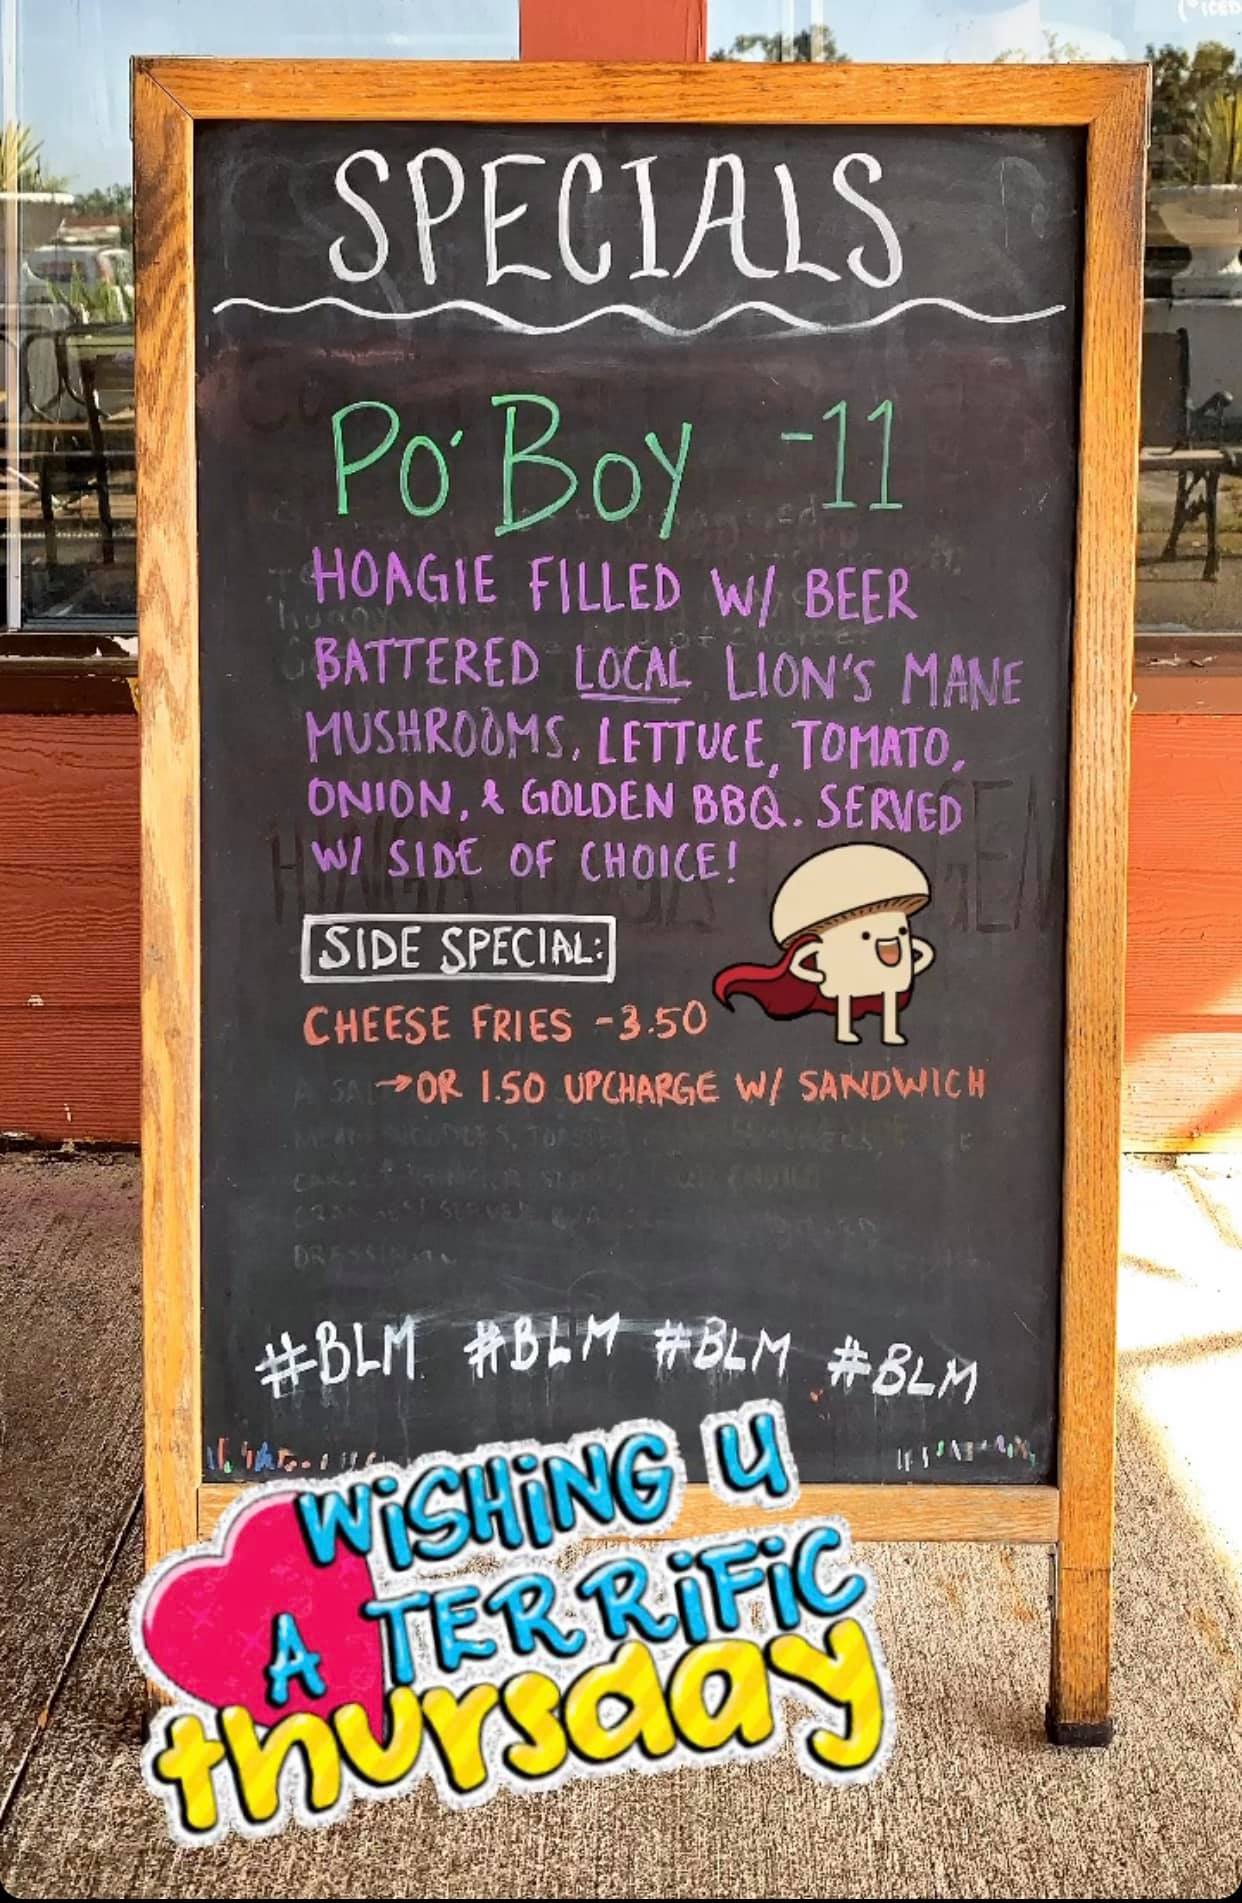 SPECIALS
PO' BOY -11
HOAGIE FILLED W/ BEER
BATTERED LOCAL LION'S MANE
MUSHROOMS, LETTUCE, TOMATO,
ONION, & GOLDEN BBQ. SERVED
W/ SIDE OF CHOICE!
SIDE SPECIAL:
CHEESE FRIES -3.50
→OR 1.50 UPCHARGE W/ SANDWICH
#BLM #BLM #BLM #BLM
WiSHiNG U
A TERRiFiC
thursday